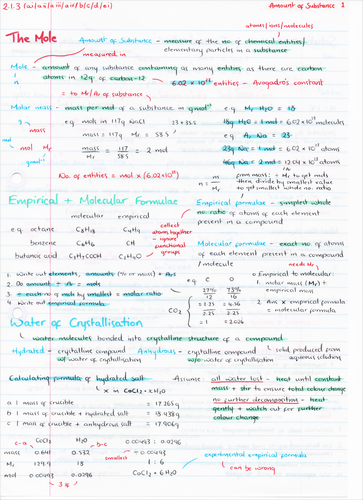 2.1.3 (ai/aii/aiii/aiv/b/c/d/ei) Amount of Substance 1
atoms/ions/molecules
The Mole Amount of Substance - measure of the no of chemical entities/
elementary particles in a substance
measured in
Mole - amount of any substance containing as many entities as there are carbon
atoms in 12g of carbon-12
n 6.02 × 10²³ entities - Avogadro's constant
= to Mr/Ar of substance
Molar mass - mass per mol of a substance in gmol⁻¹ e.g. Mr H₂O = 18
e.g. mols in 117g NaCl 23 + 35.5 18g H₂O = 1 mol = 6.02×10²³ molecules
mass mass = 117g Mr = 58.5 e.g. Ar Na = 23
mol Mr mass = 117 = 2 mol 23g Na = 1 mol = 6.02 × 10²³ atoms
Mr 58.5 46g Na = 2 mol = 12.04 × 10²³ atoms
gmol⁻¹
No. of entities = mol × (6.02×10²³) n = m/Mr
from mass: ÷ Mr to get mols
then divide by smallest value
to get smallest whole no. ratio
Empirical + Molecular Formulae Empirical formulae - simplest whole
no ratio of atoms of each element
present in a compound
molecular empirical
e.g. octane C₈H₁₈ C₄H₉
benzene C₆H₆ CH
butanoic acid C₃H₇COOH C₂H₄O
collect
atoms together
- ignore
functional
groups
Molecular formulae - exact no of atoms
of each element present in a compound
/molecule
needs Mr
1. Write out elements, amounts (% or mass) + Ars
2. Do amount ÷ Ar = mols
3. ÷ each no of mols by smallest = molar ratio
4. Write out empirical formula
e.g. C O
27% 73%
12 16
CO₂ = 2.25 = 4.56
2.25 2.25
= 1 = 2.026
Empirical to molecular:
1. molar mass (Mr) ÷
empirical mass
2. Ans × empirical formula
= molecular formula
Water of Crystallisation
water molecules bonded into crystalline structure of a compound
Hydrated - crystalline compound
w/ water of crystallisation
Anhydrous - crystalline compound
w/o water of crystallisation
solid produced from
aqueous solution
Calculating formula of hydrated salt Assume all water lost - heat until constant
mass + stir to ensure total colour change
no further decomposition - heat
gently + watch out for further
colour change
x in CoCl₂·xH₂O
a | mass of crucible = 17.265g
b | mass of crucible + hydrated salt = 18.438g
c | mass of crucible + anhydrous salt = 17.906g
c-a CoCl₂ H₂O b-c
mass 0.641 0.532
Mr 129.9 18
mol 0.00493 0.0296
smallest
0.00493 : 0.0296
÷ 0.00493
1 : 6
CoCl₂·6H₂O
experimental empirical formula
can be wrong